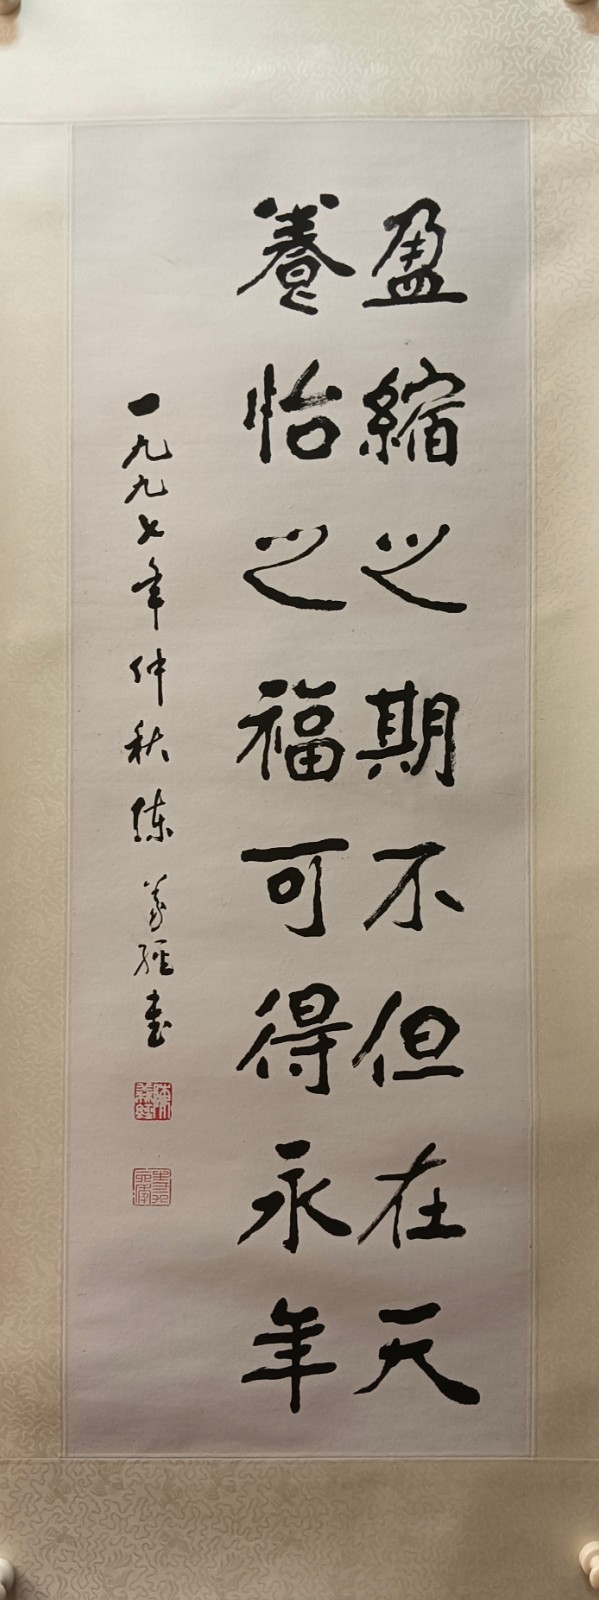 盈縮之期不但在天
養怡之福可得永年
一九九七年仲秋陳義經書
陳義經